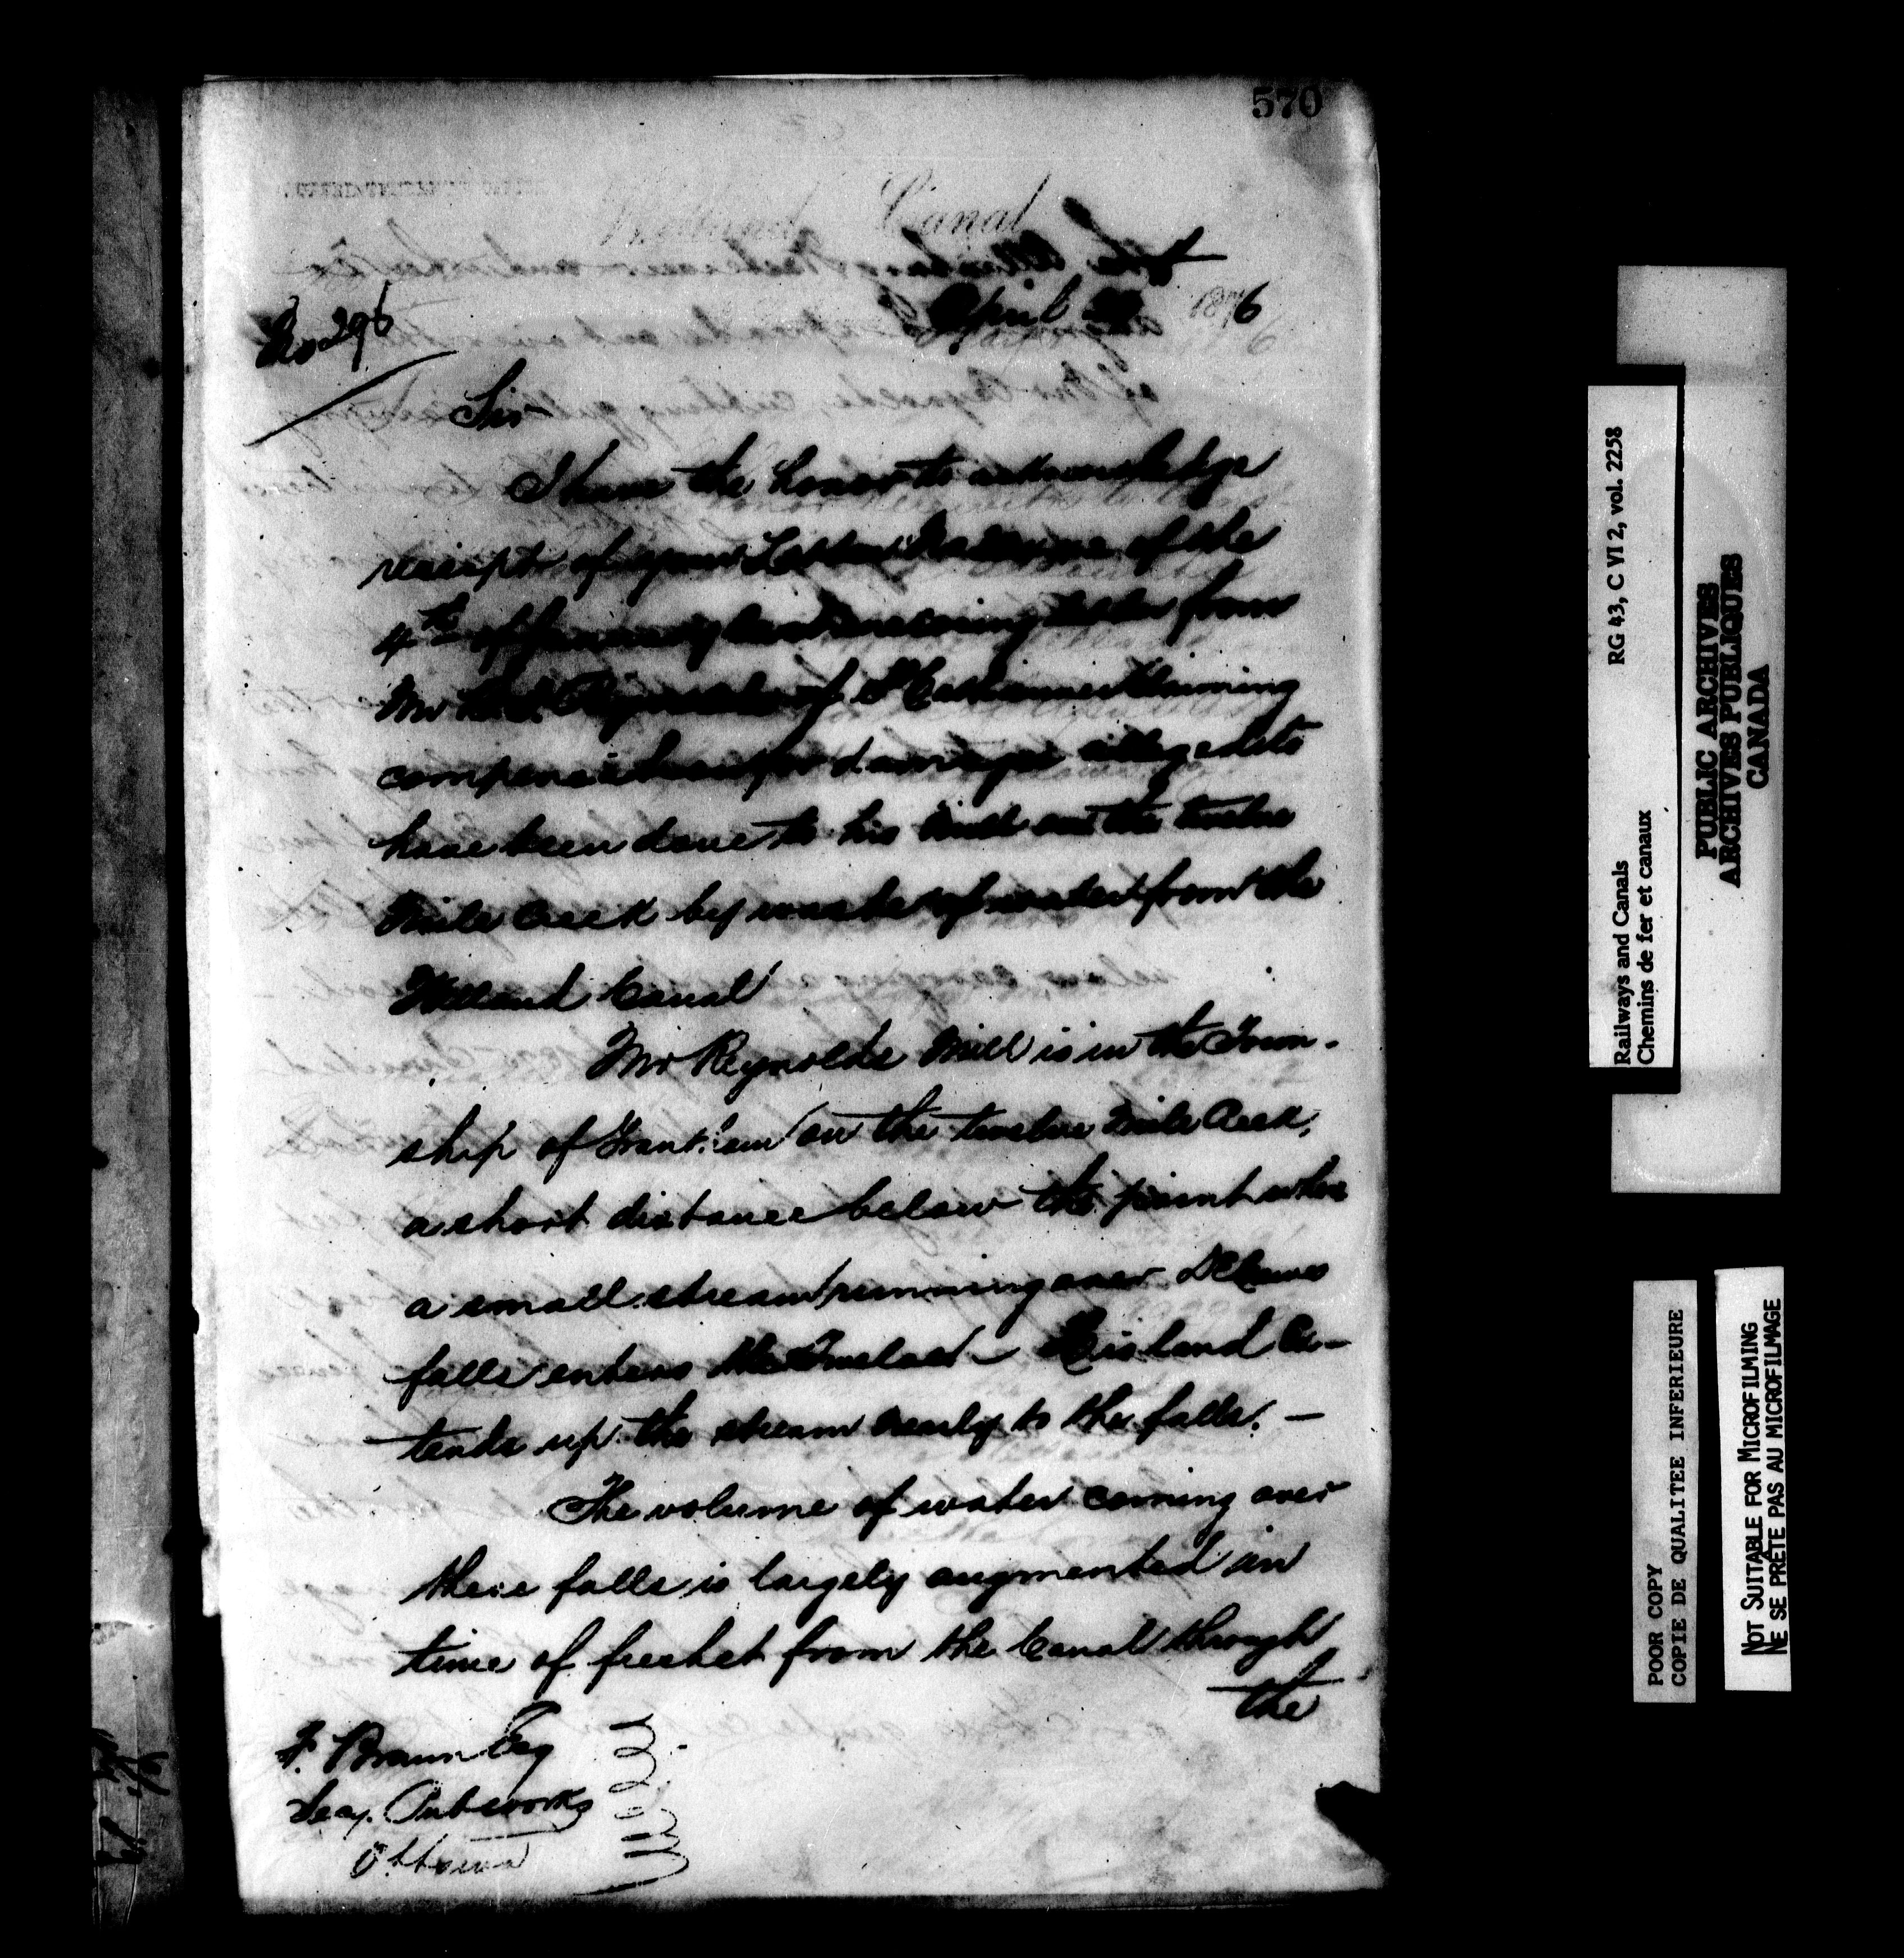 570
Welland Canal
April 1876
No 296
Sir
I have the honor to acknowledge
receipt of your Letter of the
4th of January last from
Mr Reynolds of St Catharines claiming
compensation for damage alleged to
have been done to his Mill on the twelve
Mile Creek by waste of water from the
Welland Canal
Mr Reynolds Mill is in the Town-
ship of Grantham on the twelve Mile Creek,
a short distance below the point where
a small stream running over DeCews
falls enters the Twelve – His land Ex-
tends up the stream nearly to the falls. –
The volume of water coming over
these falls is largely augmented in
time of freshet from the Canal through
the
F. Braun Esq
Secy. Pub works
Ottawa
RG 43, C VI 2, vol. 2258
Railways and Canals
Chemins de fer et canaux
PUBLIC ARCHIVES
ARCHIVES PUBLIQUES
CANADA
POOR COPY
COPIE DE QUALITEE INFERIEURE
NOT SUITABLE FOR MICROFILMING
NE SE PRÊTE PAS AU MICROFILMAGE